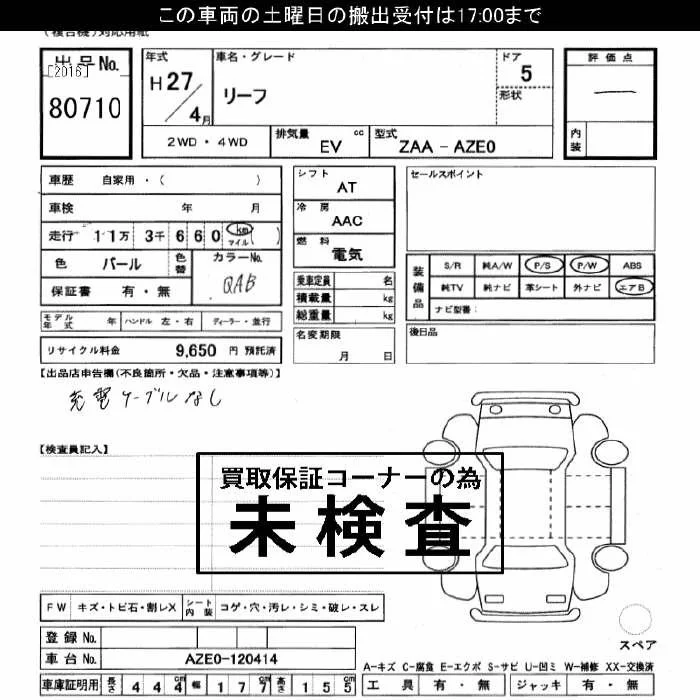 この車両の土曜日の搬出受付は17:00まで
(複合機)対応用紙
出品No.
[2016]
80710
年式
H27/4月
車名・グレード
リーフ
ドア
5
形状
評価点
―
内装
2WD・4WD
排気量 cc
EV
型式
ZAA-AZE0
車歴 自家用・( )
車検 年 月
走行 11万 3千660 km マイル ( )
色 パール 色替 カラーNo. QAB
保証書 有・無
モデル年式 年 ハンドル 左・右 ディーラー・並行
リサイクル料金 9,650 円 預託済
シフト
AT
冷房
AAC
燃料
電気
乗車定員 名
積載量 kg
総重量 kg
名変期限
月 日
セールスポイント
装備品
S/R 純A/W P/S P/W ABS
純TV 純ナビ 革シート 外ナビ エアB
ナビ型番:
後日品
【出品店申告欄(不良箇所・欠品・注意事項等)】
充電ケーブルなし
【検査員記入】
買取保証コーナーの為
未検査
FW キズ・トビ石・割レX シート内装 コゲ・穴・汚レ・シミ・破レ・スレ
登録No.
車台No. AZE0-120414
車庫証明用 長さ 444cm 幅 177cm 高さ 155cm
スペア
A-キズ C-腐食 E-エクボ S-サビ U-凹ミ W-補修 XX-交換済
工具 有・無 ジャッキ 有・無